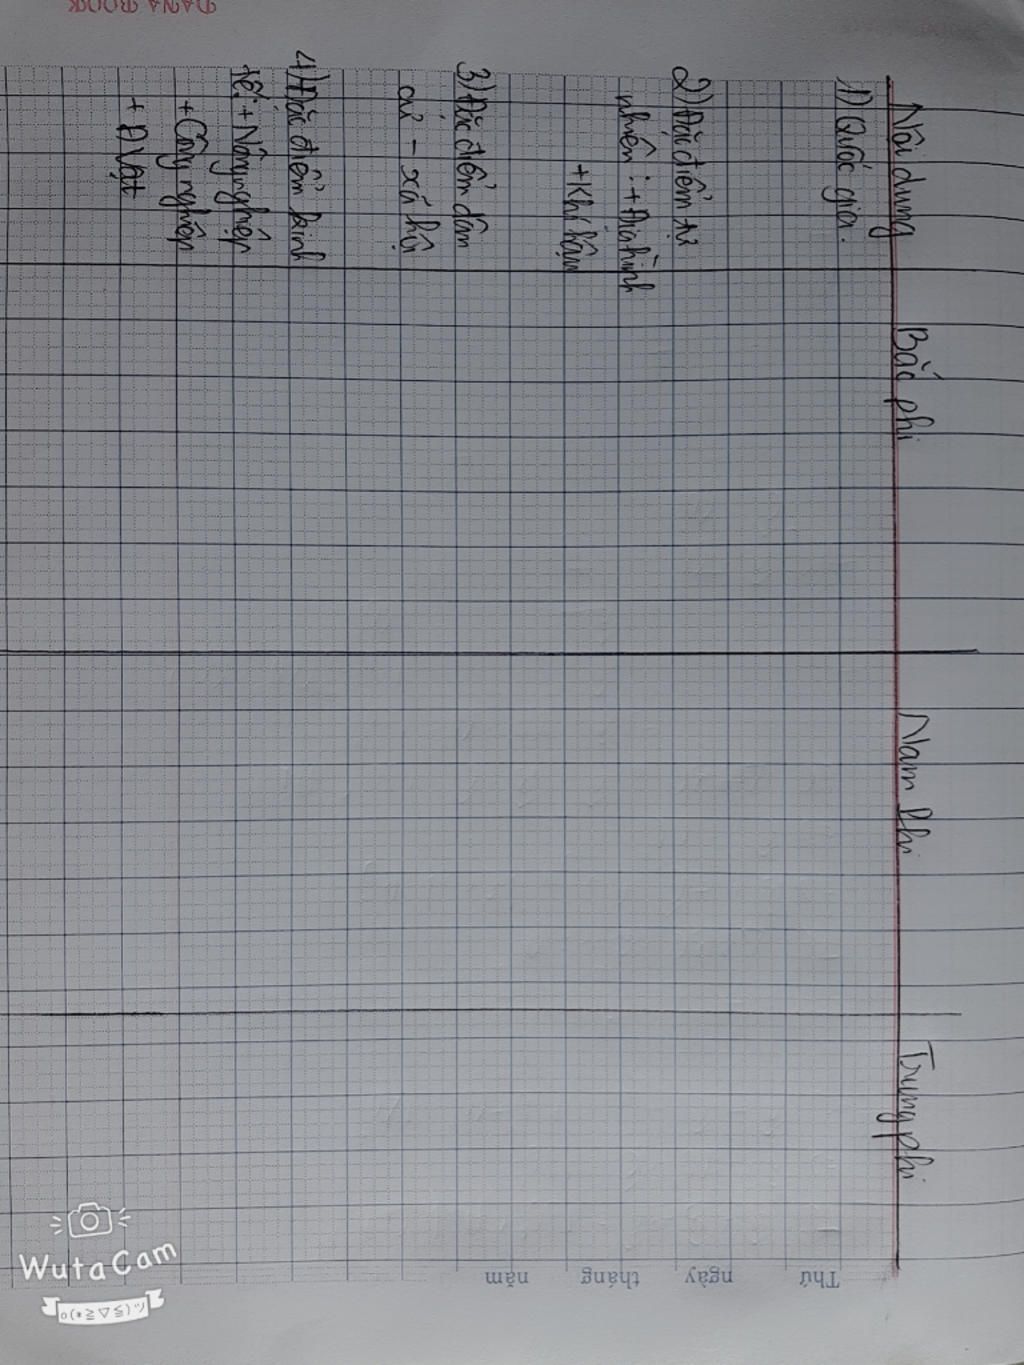 Nội dung
Bắc phi
Nam Phi
Trung phi
1) Quốc gia.
2) Đặc điểm tự
nhiên: + Địa hình
+ Khí hậu
3) Đặc điểm dân
cư - xã hội
4) Đặc điểm kinh
tế: + Nông nghiệp
+ Công nghiệp
+ Đ Vật
Thứ ngày tháng năm
BOOK
WutaCam